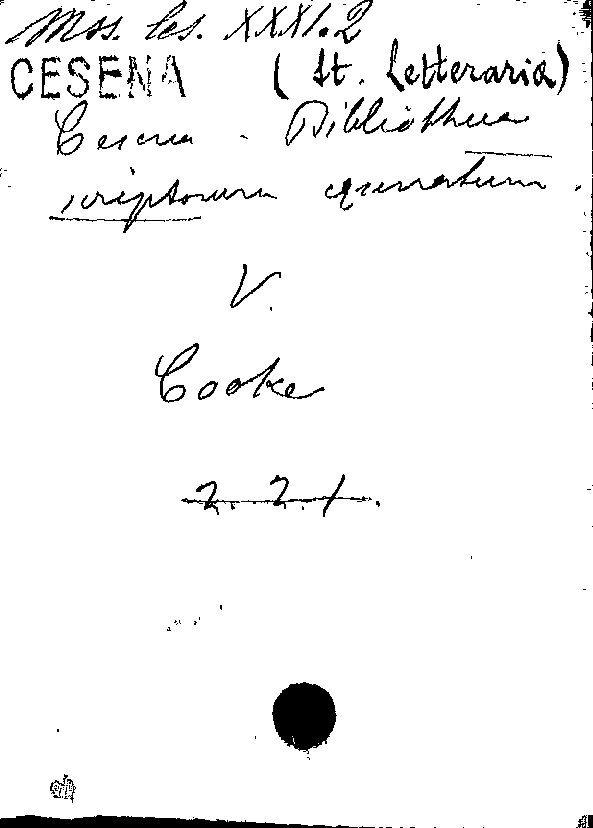 Mss. Ces. XXXI.2
CESENA (St. Letteraria)
Cesena - Bibliotheca
scriptorum equinatum.
V.
Cooke
2. 2. 1.